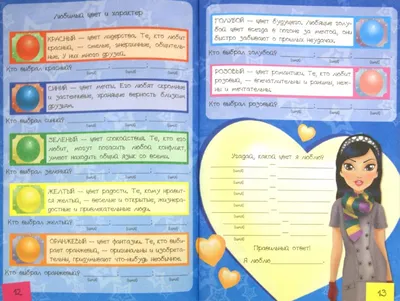 Любимый цвет и характер
КРАСНЫЙ — цвет лидерства. Те, кто любит
красный, — смелые, энергичные, общитель-
ные. У них много друзей.
Кто выбрал красный?
(имя) (имя) (имя)
СИНИЙ — цвет мечты. Его любят скромные
и застенчивые, хранящие верность близким
друзьям.
Кто выбрал синий?
(имя) (имя) (имя)
ЗЕЛЕНЫЙ — цвет спокойствия. Те, кто его
любит, могут погасить любой конфликт,
умеют находить общий язык со всеми.
Кто выбрал зеленый?
(имя) (имя) (имя)
ЖЕЛТЫЙ — цвет радости. Те, кому нравит-
ся желтый, — веселые и открытые, жизнера-
достные и привлекательные люди.
Кто выбрал желтый?
(имя) (имя) (имя)
ОРАНЖЕВЫЙ — цвет фантазии. Те, кто выби-
рает оранжевый, — оригинальны и изобрета-
тельны, придумывают что-нибудь необычное.
Кто выбрал оранжевый?
(имя) (имя) (имя)
12
ГОЛУБОЙ — цвет будущего. Любящие голу-
бой цвет всегда в погоне за мечтой, они
быстро забывают о прошлых неудачах.
Кто выбрал голубой?
(имя) (имя) (имя)
РОЗОВЫЙ — цвет романтики. Те, кто любит
розовый, — впечатлительны и ранимы, неж-
ны и мечтательны.
Кто выбрал розовый?
(имя) (имя) (имя)
Угадай, какой цвет я люблю?
(имя)
(имя)
(имя)
(имя)
(имя)
Правильный ответ:
Я люблю
13